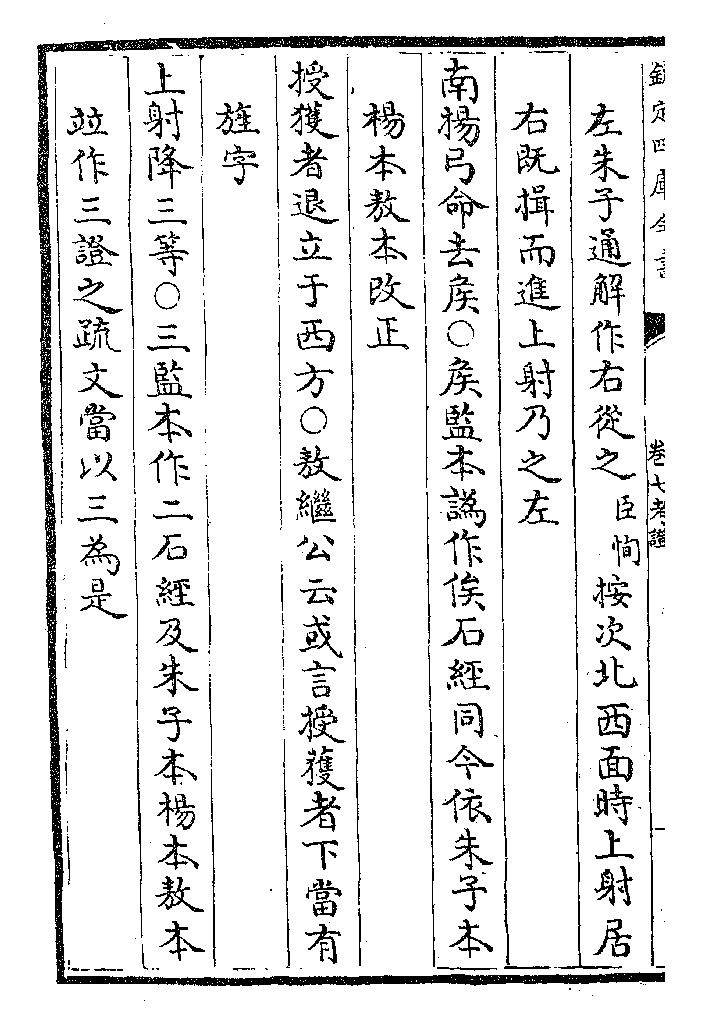 欽定四庫全書
卷七考證
左朱子通解作右從之臣恂按次北西面時上射居
右既揖而進上射乃之左
南揚弓命去矦○矦監本譌作俟石經同今依朱子本
楊本敖本改正
授獲者退立于西方○敖繼公云或言授獲者下當有
旌字
上射降三等○三監本作二石經及朱子本楊本敖本
竝作三證之疏文當以三為是